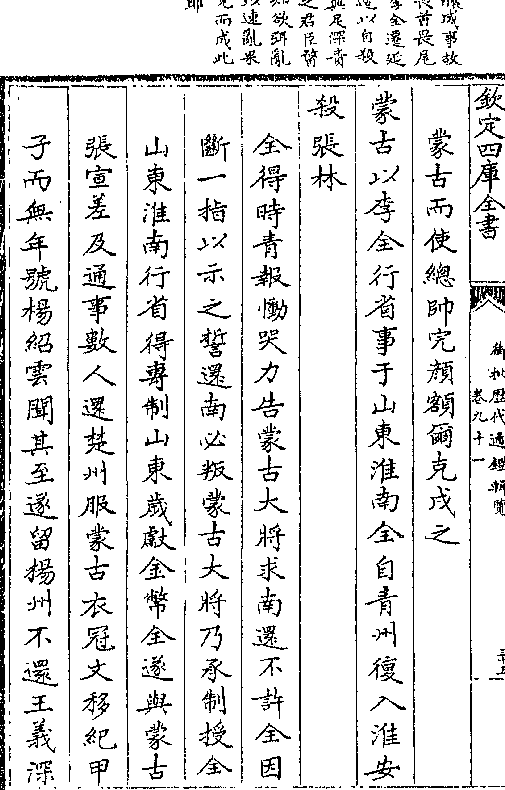 欽定四庫全書
御批歷代通鑑輯覽
卷九十一
蒙古而使總帥完顏額爾克戍之
蒙古以李全行省事于山東淮南全自青州復入淮安
殺張林
全得時青報慟哭力告蒙古大將求南還不許全因
斷一指以示之誓還南必叛蒙古大將乃承制授全
山東淮南行省得專制山東歲獻金幣全遂與蒙古
張宣差及通事數人還楚州服蒙古衣冠文移紀甲
子而無年號楊紹雲聞其至遂留揚州不還王義深
釀成事故
畏首畏尾
李全還延
遂以自殺
無足深責
之君臣
欲弭亂
以速亂
而成此